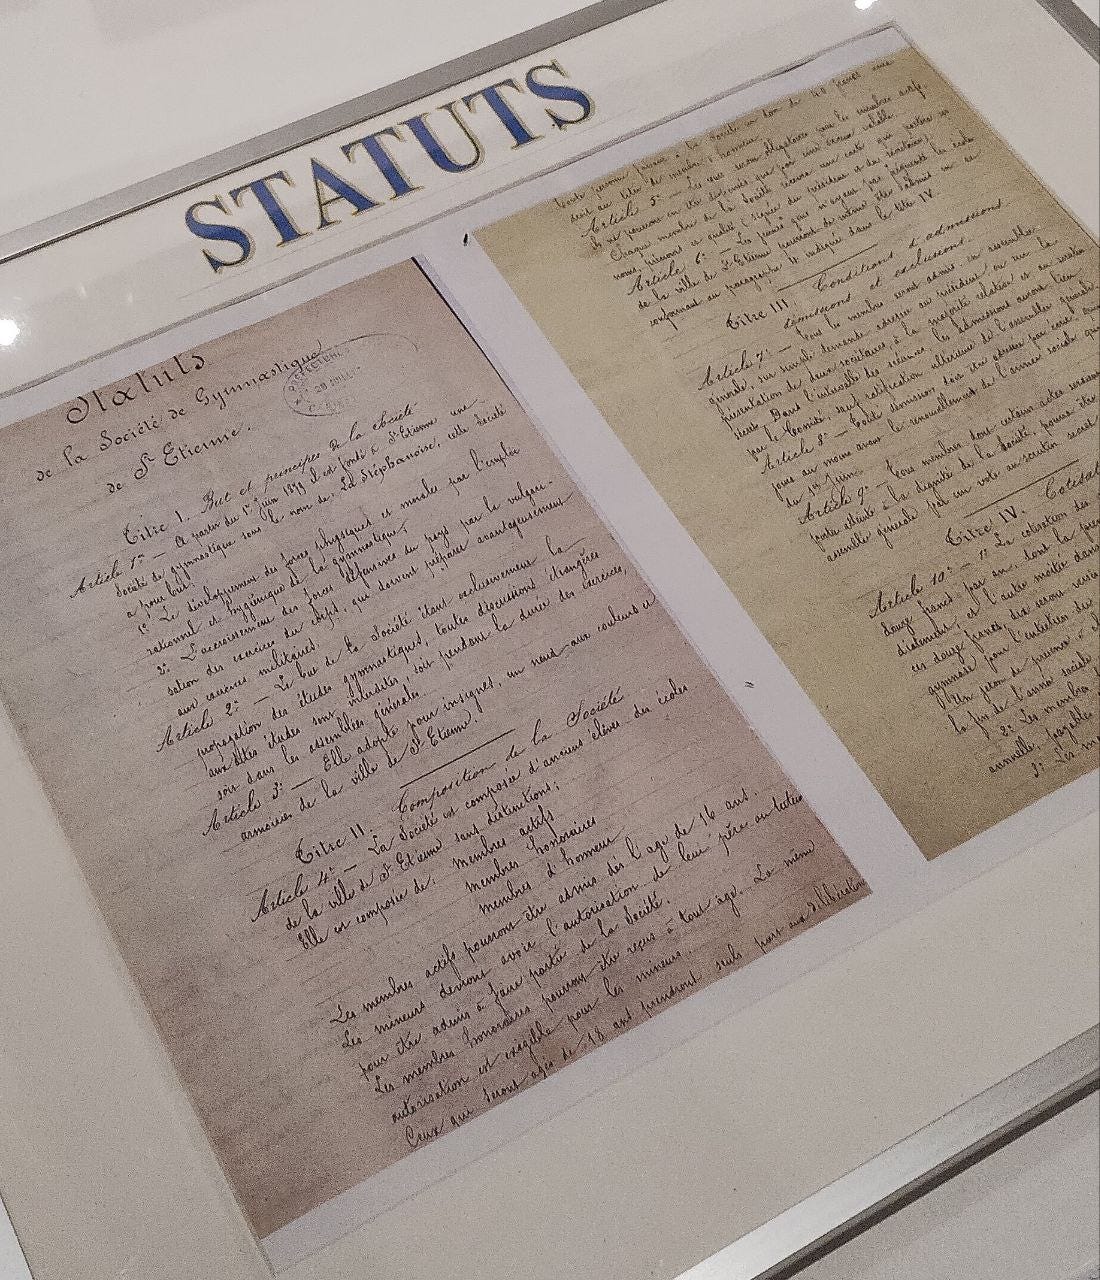 STATUTS
Statuts
de la Société de Gymnastique
de St Etienne.
Titre 1. But et principes de la Société
Article 1er — A partir du 1er Juin 1879 il est fondé à St Etienne une
Société de gymnastique sous le nom de La Stéphanoise, cette Société
a pour but:
1° Le développement des forces physiques et morales par l'emploi
rationnel et hygiénique de la gymnastique.
2° L'accroissement des forces défensives du pays par la vulgari-
sation des exercices du corps, qui doivent préparer avantageusement
aux exercices militaires.
Article 2e — Le but de la Société étant exclusivement la
propagation des études gymnastiques, toutes discussions étrangères
aux dites études sont interdites, soit pendant la durée des exercices,
soit dans les assemblées générales.
Article 3e — Elle adopte pour insignes, un nœud aux couleurs et
armoiries de la ville de St Etienne.
Titre II. Composition de la Société
Article 4e — La Société est composée d'anciens élèves des écoles
de la ville de St Etienne sans distinctions;
Elle est composée de: membres actifs
membres honoraires
membres d'honneur
Les membres actifs pourront être admis dès l'age de 16 ans.
Les mineurs devront avoir l'autorisation de leur père ou tuteur
pour être admis à faire partie de la Société.
Les membres honoraires pourront être reçus à tout âge. La même
autorisation est exigible pour les mineurs.
Ceux qui seront agés de 18 ans prendront seuls part aux délibérations
droit au titre de membre d'honneur.
Article 5e — Les
Chaque membre de la Société recevra une carte qui portera ses
noms, prénoms et qualité, l'signée du président et du secrétaire.
Article 6e — Les
de la ville de St Etienne pourront de même être admis en se
conformant au paragraphe 4 indiqué dans le titre IV.
Titre III. Conditions d'admissions.
démissions et exclusions.
Article 7e — Tout membre sera admis en assemblée
générale, sur simple demande adressée au président ou sur la
présentation de deux sociétaires, à la majorité relative et au scrutin
secret. Dans l'intervalle des séances les admissions auront lieu
par le Comité, sauf ratification ultérieure de l'assemblée générale
Article 8e — Toute démission doit être adressée par écrit
jours au moins avant le renouvellement de l'année sociale
du 1er Juin.
Article 9e — Tous membres dont certains actes seraient
porter atteinte à la dignité de la Société, pourra être
assemblée générale par un vote au scrutin secret
Titre IV. Cotisat
Article 10e — 1° La cotisation des
douze francs par an, dont la
et l'autre moitié dans
ces douze francs, dix seront
gymnase pour l'entretien du
Un jeton de présence
la fin de l'année sociale
2° Les membres
annuelle, payables
3° Les m